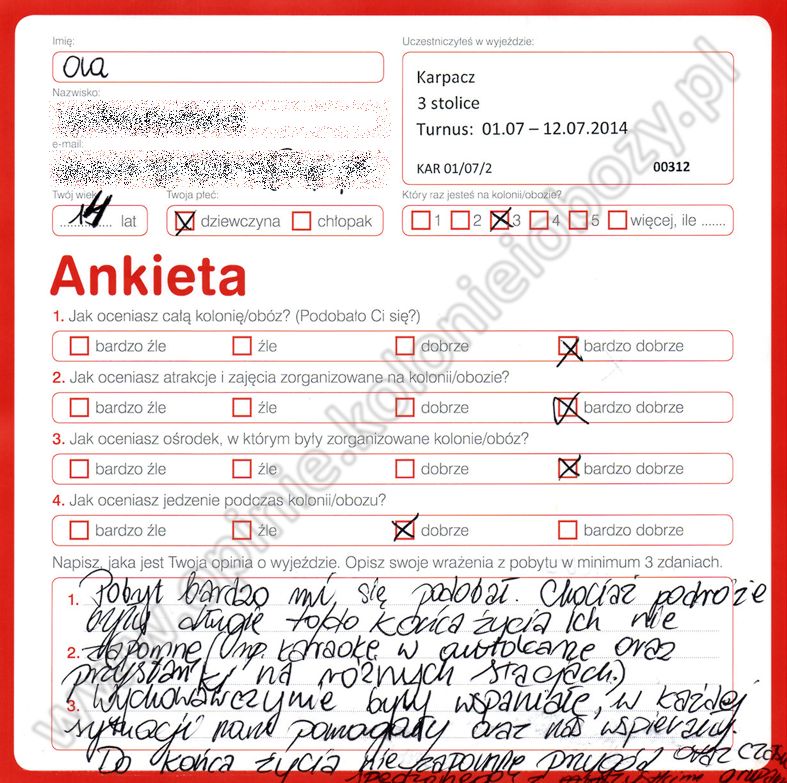 Imię:
Ola
Uczestniczyłeś w wyjeździe:
Karpacz
3 stolice
Turnus: 01.07 – 12.07.2014
KAR 01/07/2 00312
Nazwisko:
e-mail:
Twój wiek:
14 lat
Twoja płeć:
dziewczyna chłopak
Który raz jesteś na kolonii/obozie?
1 2 3 4 5 więcej, ile .......
Ankieta
1. Jak oceniasz całą kolonię/obóz? (Podobało Ci się?)
bardzo źle źle dobrze bardzo dobrze
2. Jak oceniasz atrakcje i zajęcia zorganizowane na kolonii/obozie?
bardzo źle źle dobrze bardzo dobrze
3. Jak oceniasz ośrodek, w którym były zorganizowane kolonie/obóz?
bardzo źle źle dobrze bardzo dobrze
4. Jak oceniasz jedzenie podczas kolonii/obozu?
bardzo źle źle dobrze bardzo dobrze
Napisz, jaka jest Twoja opinia o wyjeździe. Opisz swoje wrażenia z pobytu w minimum 3 zdaniach.
1. Pobyt bardzo mi się podobał. Chociaż podróże
były długie to do końca życia ich nie
2. zapomnę (np. karaoke w autokarze oraz
przystanki na różnych stacjach.)
3. Wychowawczynie były wspaniałe, w każdej
sytuacji nam pomagały oraz nas wspierały.
Do końca życia nie zapomnę przygód oraz
www.opinie.kolonieiobozy.pl